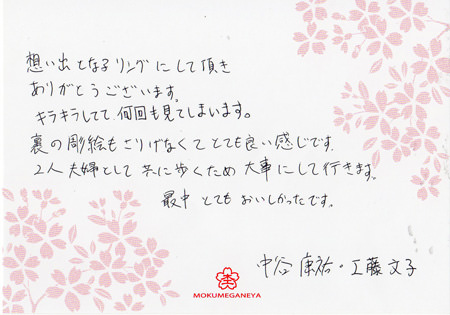 想い出となるリングにして頂き
ありがとうございます。
キラキラしてて、何回も見てしまいます。
裏の彫絵もさりげなくてとても良い感じです。
2人夫婦として共に歩くため大事にして行きます。
最中とてもおいしかったです。
中谷康祐・工藤文子
MOKUMEGANEYA